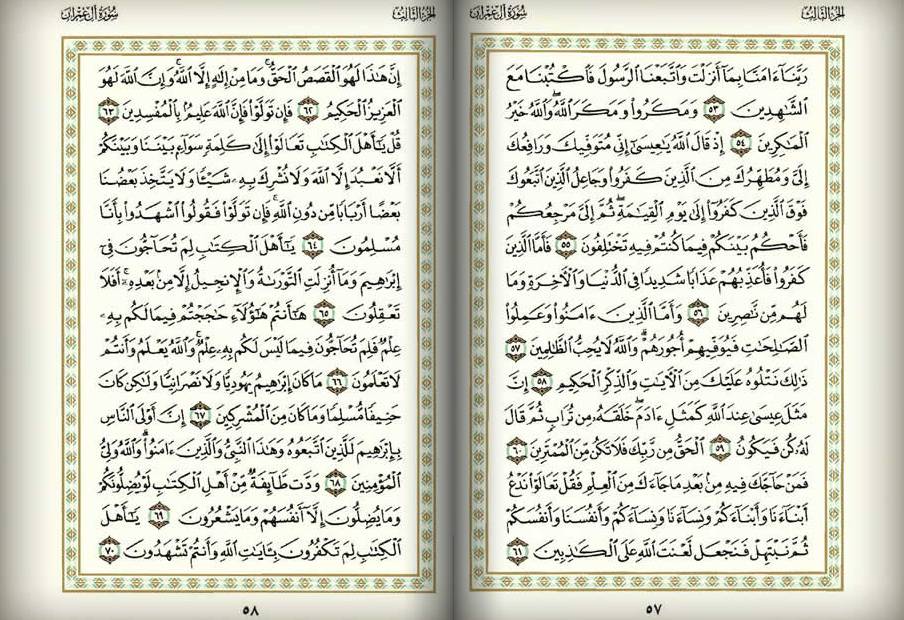 الجزء الثالث
سورة آل عمران
رَبَّنَآ ءَامَنَّا بِمَآ أَنزَلْتَ وَٱتَّبَعْنَا ٱلرَّسُولَ فَٱكْتُبْنَا مَعَ
ٱلشَّٰهِدِينَ ٥٣ وَمَكَرُوا۟ وَمَكَرَ ٱللَّهُ ۖ وَٱللَّهُ خَيْرُ
ٱلْمَٰكِرِينَ ٥٤ إِذْ قَالَ ٱللَّهُ يَٰعِيسَىٰٓ إِنِّى مُتَوَفِّيكَ وَرَافِعُكَ
إِلَىَّ وَمُطَهِّرُكَ مِنَ ٱلَّذِينَ كَفَرُوا۟ وَجَاعِلُ ٱلَّذِينَ ٱتَّبَعُوكَ
فَوْقَ ٱلَّذِينَ كَفَرُوٓا۟ إِلَىٰ يَوْمِ ٱلْقِيَٰمَةِ ۖ ثُمَّ إِلَىَّ مَرْجِعُكُمْ
فَأَحْكُمُ بَيْنَكُمْ فِيمَا كُنتُمْ فِيهِ تَخْتَلِفُونَ ٥٥ فَأَمَّا ٱلَّذِينَ
كَفَرُوا۟ فَأُعَذِّبُهُمْ عَذَابًا شَدِيدًا فِى ٱلدُّنْيَا وَٱلْءَاخِرَةِ وَمَا
لَهُم مِّن نَّٰصِرِينَ ٥٦ وَأَمَّا ٱلَّذِينَ ءَامَنُوا۟ وَعَمِلُوا۟
ٱلصَّٰلِحَٰتِ فَيُوَفِّيهِمْ أُجُورَهُمْ ۗ وَٱللَّهُ لَا يُحِبُّ ٱلظَّٰلِمِينَ ٥٧
ذَٰلِكَ نَتْلُوهُ عَلَيْكَ مِنَ ٱلْءَايَٰتِ وَٱلذِّكْرِ ٱلْحَكِيمِ ٥٨ إِنَّ
مَثَلَ عِيسَىٰ عِندَ ٱللَّهِ كَمَثَلِ ءَادَمَ ۖ خَلَقَهُۥ مِن تُرَابٍ ثُمَّ قَالَ
لَهُۥ كُن فَيَكُونُ ٥٩ ٱلْحَقُّ مِن رَّبِّكَ فَلَا تَكُن مِّنَ ٱلْمُمْتَرِينَ ٦٠
فَمَنْ حَآجَّكَ فِيهِ مِنۢ بَعْدِ مَا جَآءَكَ مِنَ ٱلْعِلْمِ فَقُلْ تَعَالَوْا۟ نَدْعُ
أَبْنَآءَنَا وَأَبْنَآءَكُمْ وَنِسَآءَنَا وَنِسَآءَكُمْ وَأَنفُسَنَا وَأَنفُسَكُمْ
ثُمَّ نَبْتَهِلْ فَنَجْعَل لَّعْنَتَ ٱللَّهِ عَلَى ٱلْكَٰذِبِينَ ٦١
٥٧
الجزء الثالث
سورة آل عمران
إِنَّ هَٰذَا لَهُوَ ٱلْقَصَصُ ٱلْحَقُّ ۚ وَمَا مِنْ إِلَٰهٍ إِلَّا ٱللَّهُ ۚ وَإِنَّ ٱللَّهَ لَهُوَ
ٱلْعَزِيزُ ٱلْحَكِيمُ ٦٢ فَإِن تَوَلَّوْا۟ فَإِنَّ ٱللَّهَ عَلِيمٌۢ بِٱلْمُفْسِدِينَ ٦٣
قُلْ يَٰٓأَهْلَ ٱلْكِتَٰبِ تَعَالَوْا۟ إِلَىٰ كَلِمَةٍ سَوَآءٍۭ بَيْنَنَا وَبَيْنَكُمْ
أَلَّا نَعْبُدَ إِلَّا ٱللَّهَ وَلَا نُشْرِكَ بِهِۦ شَيْـًٔا وَلَا يَتَّخِذَ بَعْضُنَا
بَعْضًا أَرْبَابًا مِّن دُونِ ٱللَّهِ ۚ فَإِن تَوَلَّوْا۟ فَقُولُوا۟ ٱشْهَدُوا۟ بِأَنَّا
مُسْلِمُونَ ٦٤ يَٰٓأَهْلَ ٱلْكِتَٰبِ لِمَ تُحَآجُّونَ فِىٓ
إِبْرَٰهِيمَ وَمَآ أُنزِلَتِ ٱلتَّوْرَىٰةُ وَٱلْإِنجِيلُ إِلَّا مِنۢ بَعْدِهِۦٓ ۚ أَفَلَا
تَعْقِلُونَ ٦٥ هَٰٓأَنتُمْ هَٰٓؤُلَآءِ حَٰجَجْتُمْ فِيمَا لَكُم بِهِۦ
عِلْمٌ فَلِمَ تُحَآجُّونَ فِيمَا لَيْسَ لَكُم بِهِۦ عِلْمٌ ۚ وَٱللَّهُ يَعْلَمُ وَأَنتُمْ
لَا تَعْلَمُونَ ٦٦ مَا كَانَ إِبْرَٰهِيمُ يَهُودِيًّا وَلَا نَصْرَانِيًّا وَلَٰكِن كَانَ
حَنِيفًا مُّسْلِمًا وَمَا كَانَ مِنَ ٱلْمُشْرِكِينَ ٦٧ إِنَّ أَوْلَى ٱلنَّاسِ
بِإِبْرَٰهِيمَ لَلَّذِينَ ٱتَّبَعُوهُ وَهَٰذَا ٱلنَّبِىُّ وَٱلَّذِينَ ءَامَنُوا۟ ۗ وَٱللَّهُ وَلِىُّ
ٱلْمُؤْمِنِينَ ٦٨ وَدَّت طَّآئِفَةٌ مِّنْ أَهْلِ ٱلْكِتَٰبِ لَوْ يُضِلُّونَكُمْ
وَمَا يُضِلُّونَ إِلَّآ أَنفُسَهُمْ وَمَا يَشْعُرُونَ ٦٩ يَٰٓأَهْلَ
ٱلْكِتَٰبِ لِمَ تَكْفُرُونَ بِـَٔايَٰتِ ٱللَّهِ وَأَنتُمْ تَشْهَدُونَ ٧٠
٥٨